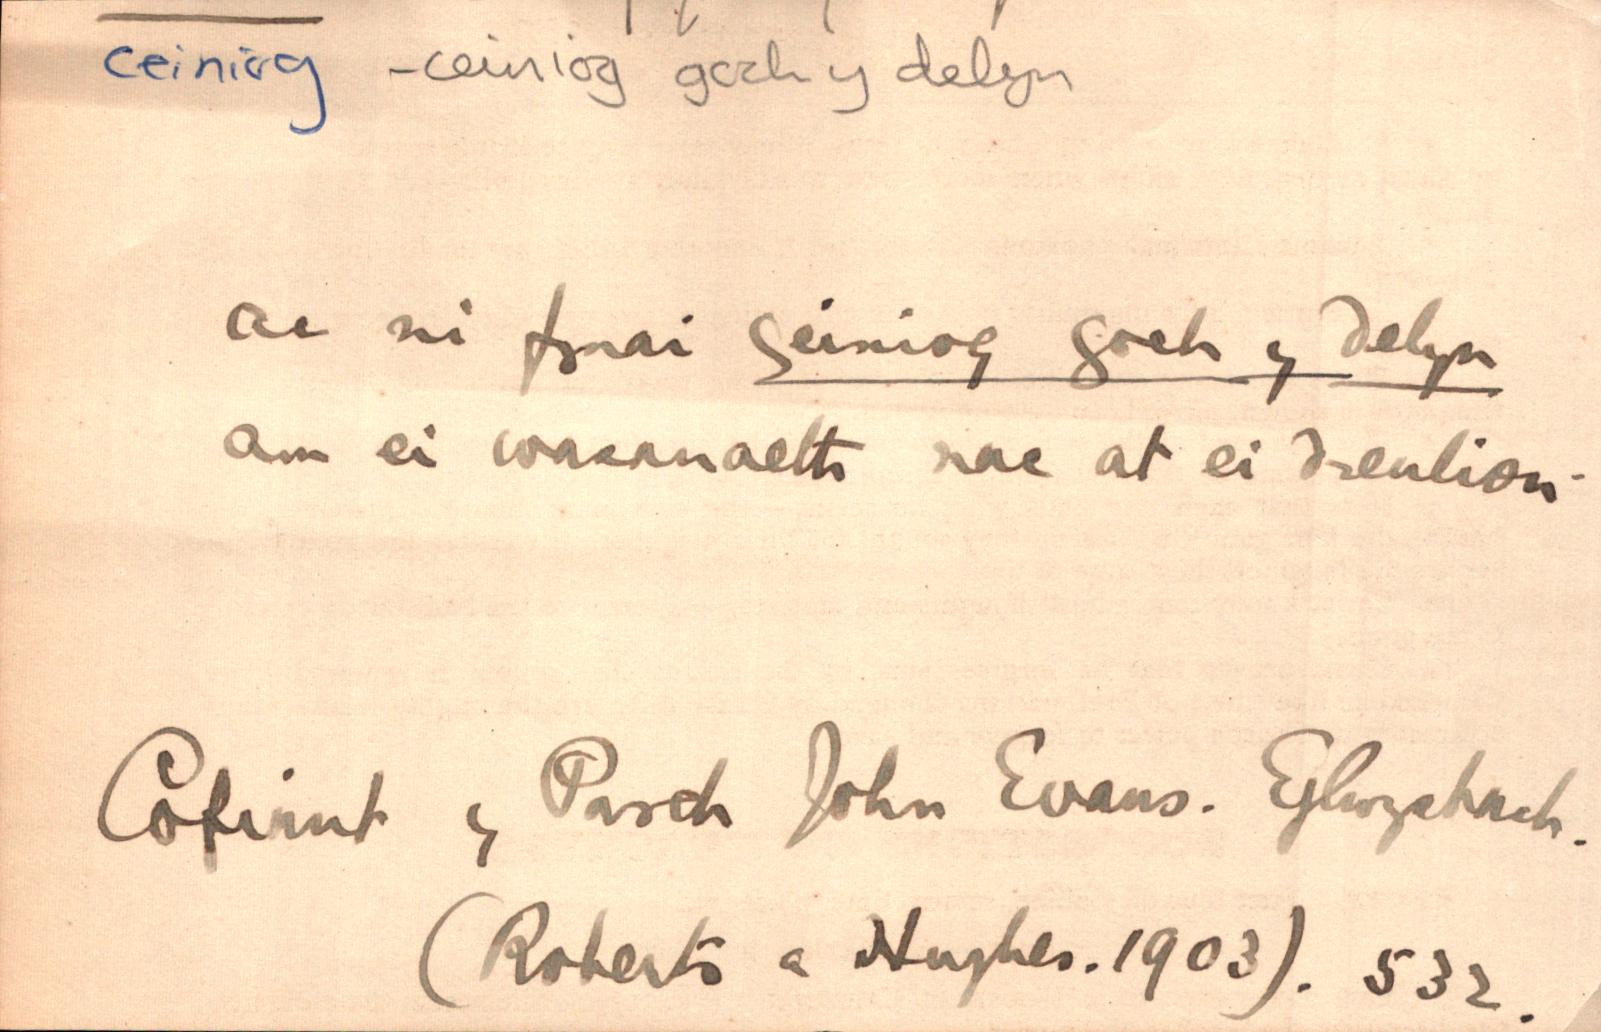 ceiniog - ceiniog goch y delyn
ac ni fynai geiniog goch y delyn
am ei wasanaeth nac at ei dreulion.
Cofiant y Parch John Evans. Eglwysbach.
(Roberts a Hughes. 1903). 532.